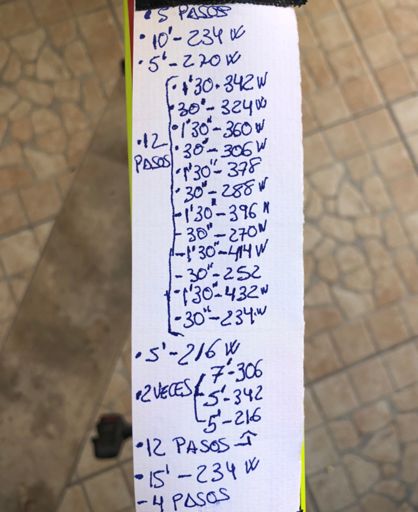 • 5 PASOS
• 10' - 234 W
• 5' - 220 W
• 1'30 - 342 W
30" - 324 W
• 1'30" - 360 W
• 12 PASOS
• 30" - 306 W
• 1'30" - 378
• 30" - 288 W
- 1'30" - 396 W
- 30" - 270 W
- 1'30" - 414 W
- 30" - 252
• 1'30" - 432 W
• 30" - 234 W
• 5' - 216 W
• 2 VECES
7' - 306
- 5' - 342
- 5' - 216
• 12 PASOS ↑
• 15' - 234 W
- 4 PASOS